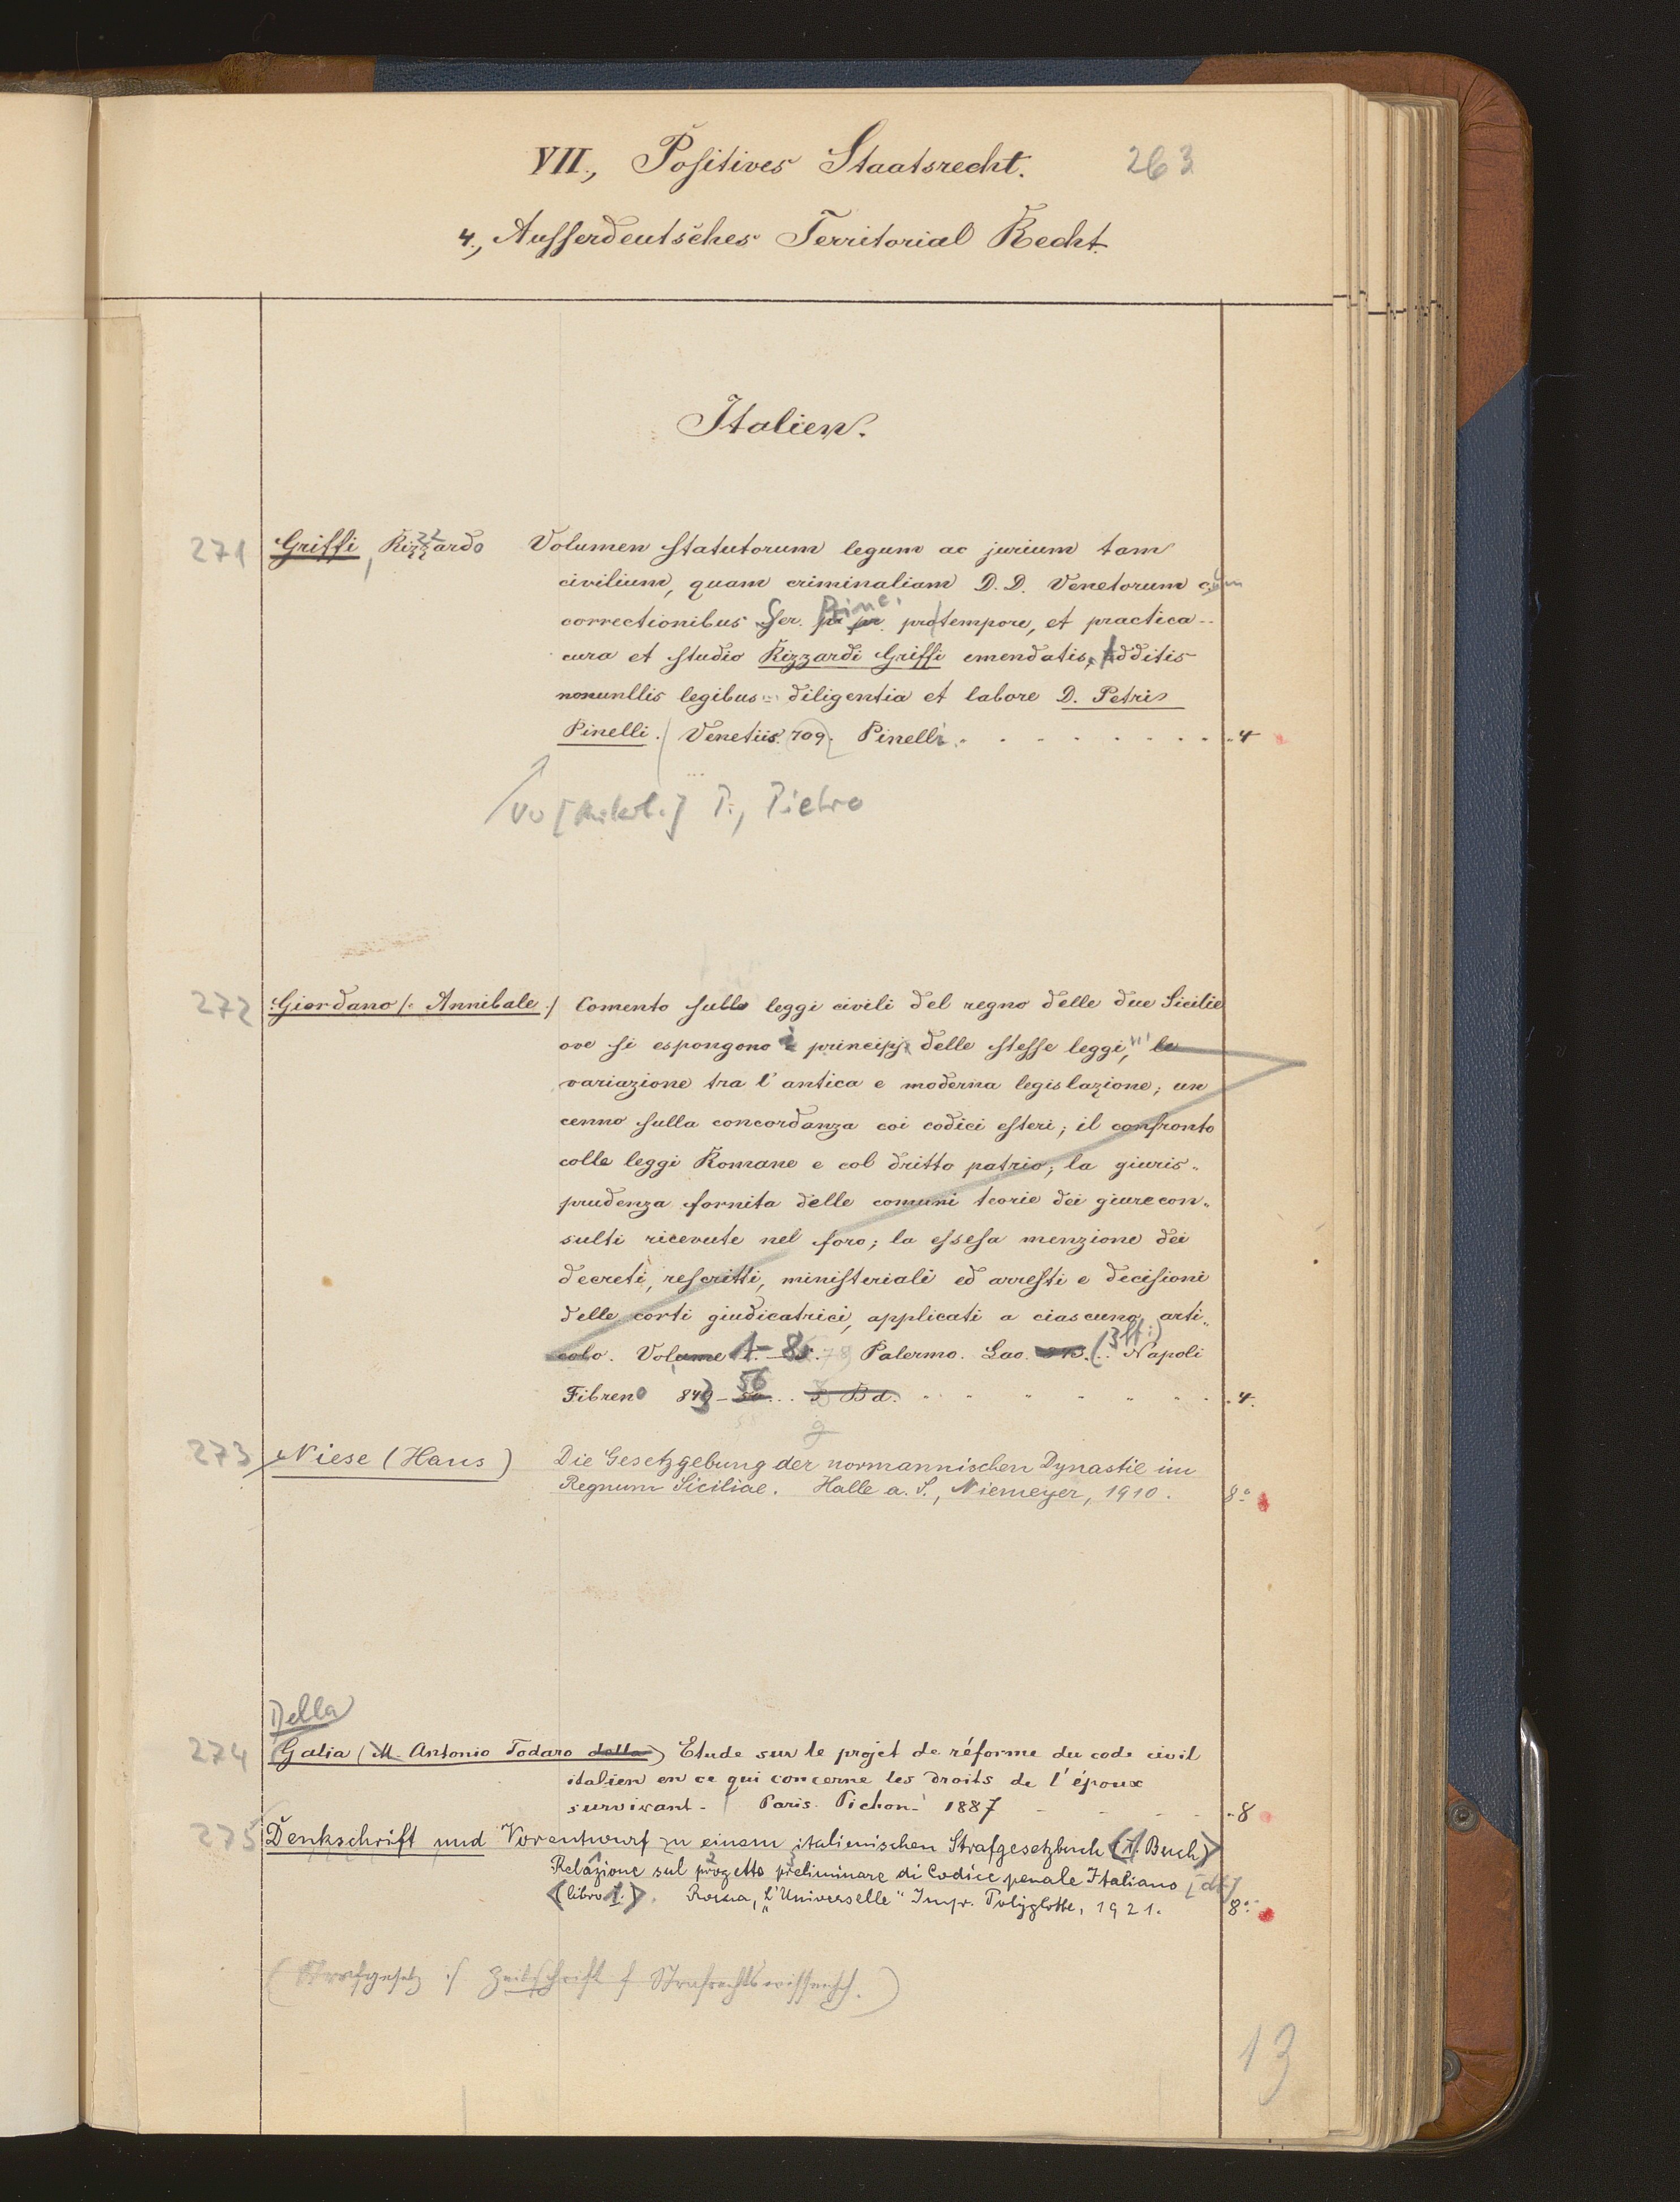 VII., Positives Staatsrecht. 263
4., Ausserdeutsches Territorial Recht.
Italien.
271 Griffi, Rizzardo Volumen statutorum legum ac jurium tam
civilium, quam criminaliam D. D. Venetorum cum
correctionibus Ser. Princ. pro tempore, et practica
cura et studio Rizzardi Griffi emendatis, additis
nonunllis legibus diligentia et labore D. Petris
Pinelli. Venetiis. 709. Pinelli. 4
P., Pietro
272 Giordano /: Annibale :/ Comento sulle leggi civili del regno delle due Sicilie
ove si espongono i principj delle stesse leggi, la
variazione tra l'antica e moderna legislazione; un
cenno sulla concordanza coi codici esteri; il confronto
colle leggi Romane e col dritto patrio; la giuris-
prudenza fornita delle comuni teorie dei giurecon-
sulti ricevute nel foro; la essesa menzione dei
decreti, rescritti, ministeriali ed arresti e decisioni
delle corti giudicatrici, applicati a ciascuno arti-
colo. Volume 1-8. Palermo. Lao. (3ff:) Napoli
Fibreno 843-56 5 Bd. 4.
273 Niese (Hans) Die Gesetzgebung der normannischen Dynastie im
Regnum Siciliae. Halle a. S., Niemeyer, 1910. 8°
Della
274 Galia (M. Antonio Todaro della) Etude sur le projet de réforme du code civil
italien en ce qui concerne les droits de l'époux
survivant - Paris. Pichon - 1887 8
275 Denkschrift und Vorentwurf zu einem italienischen Strafgesetzbuch (I. Buch)
Relazione sul progetto preliminare di Codice penale Italiano [dt.]
(libro I.). Roma, „L'Universelle" Impr. Polyglotte, 1921. 8°
(Strafgesetz :/ Zeitschrift f Strafrechtswissensch.)
13